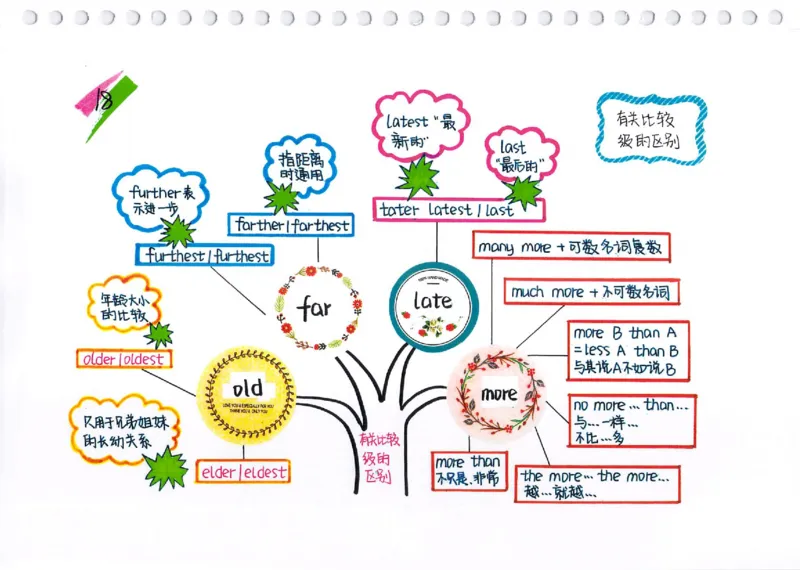 18
有关比较
级的区别
latest "最
新的"
last
"最后的"
tater latest / last
指距离
时通用
farther/farthest
further表
示进一步
furthest/furthest
far
late
年龄大小
的比较
older/oldest
old
LOVE YOU & ESPECIALLY FOR YOU
THANK YOU & ONLY YOU
只用于兄弟姐妹
的长幼关系
elder/eldest
many more + 可数名词复数
much more + 不可数名词
more B than A
=less A than B
与其说A不如说B
more
no more … than…
与…一样…
不比…多
more than
不只是、非常
the more… the more…
越…就越…
有关比较
级的
区别